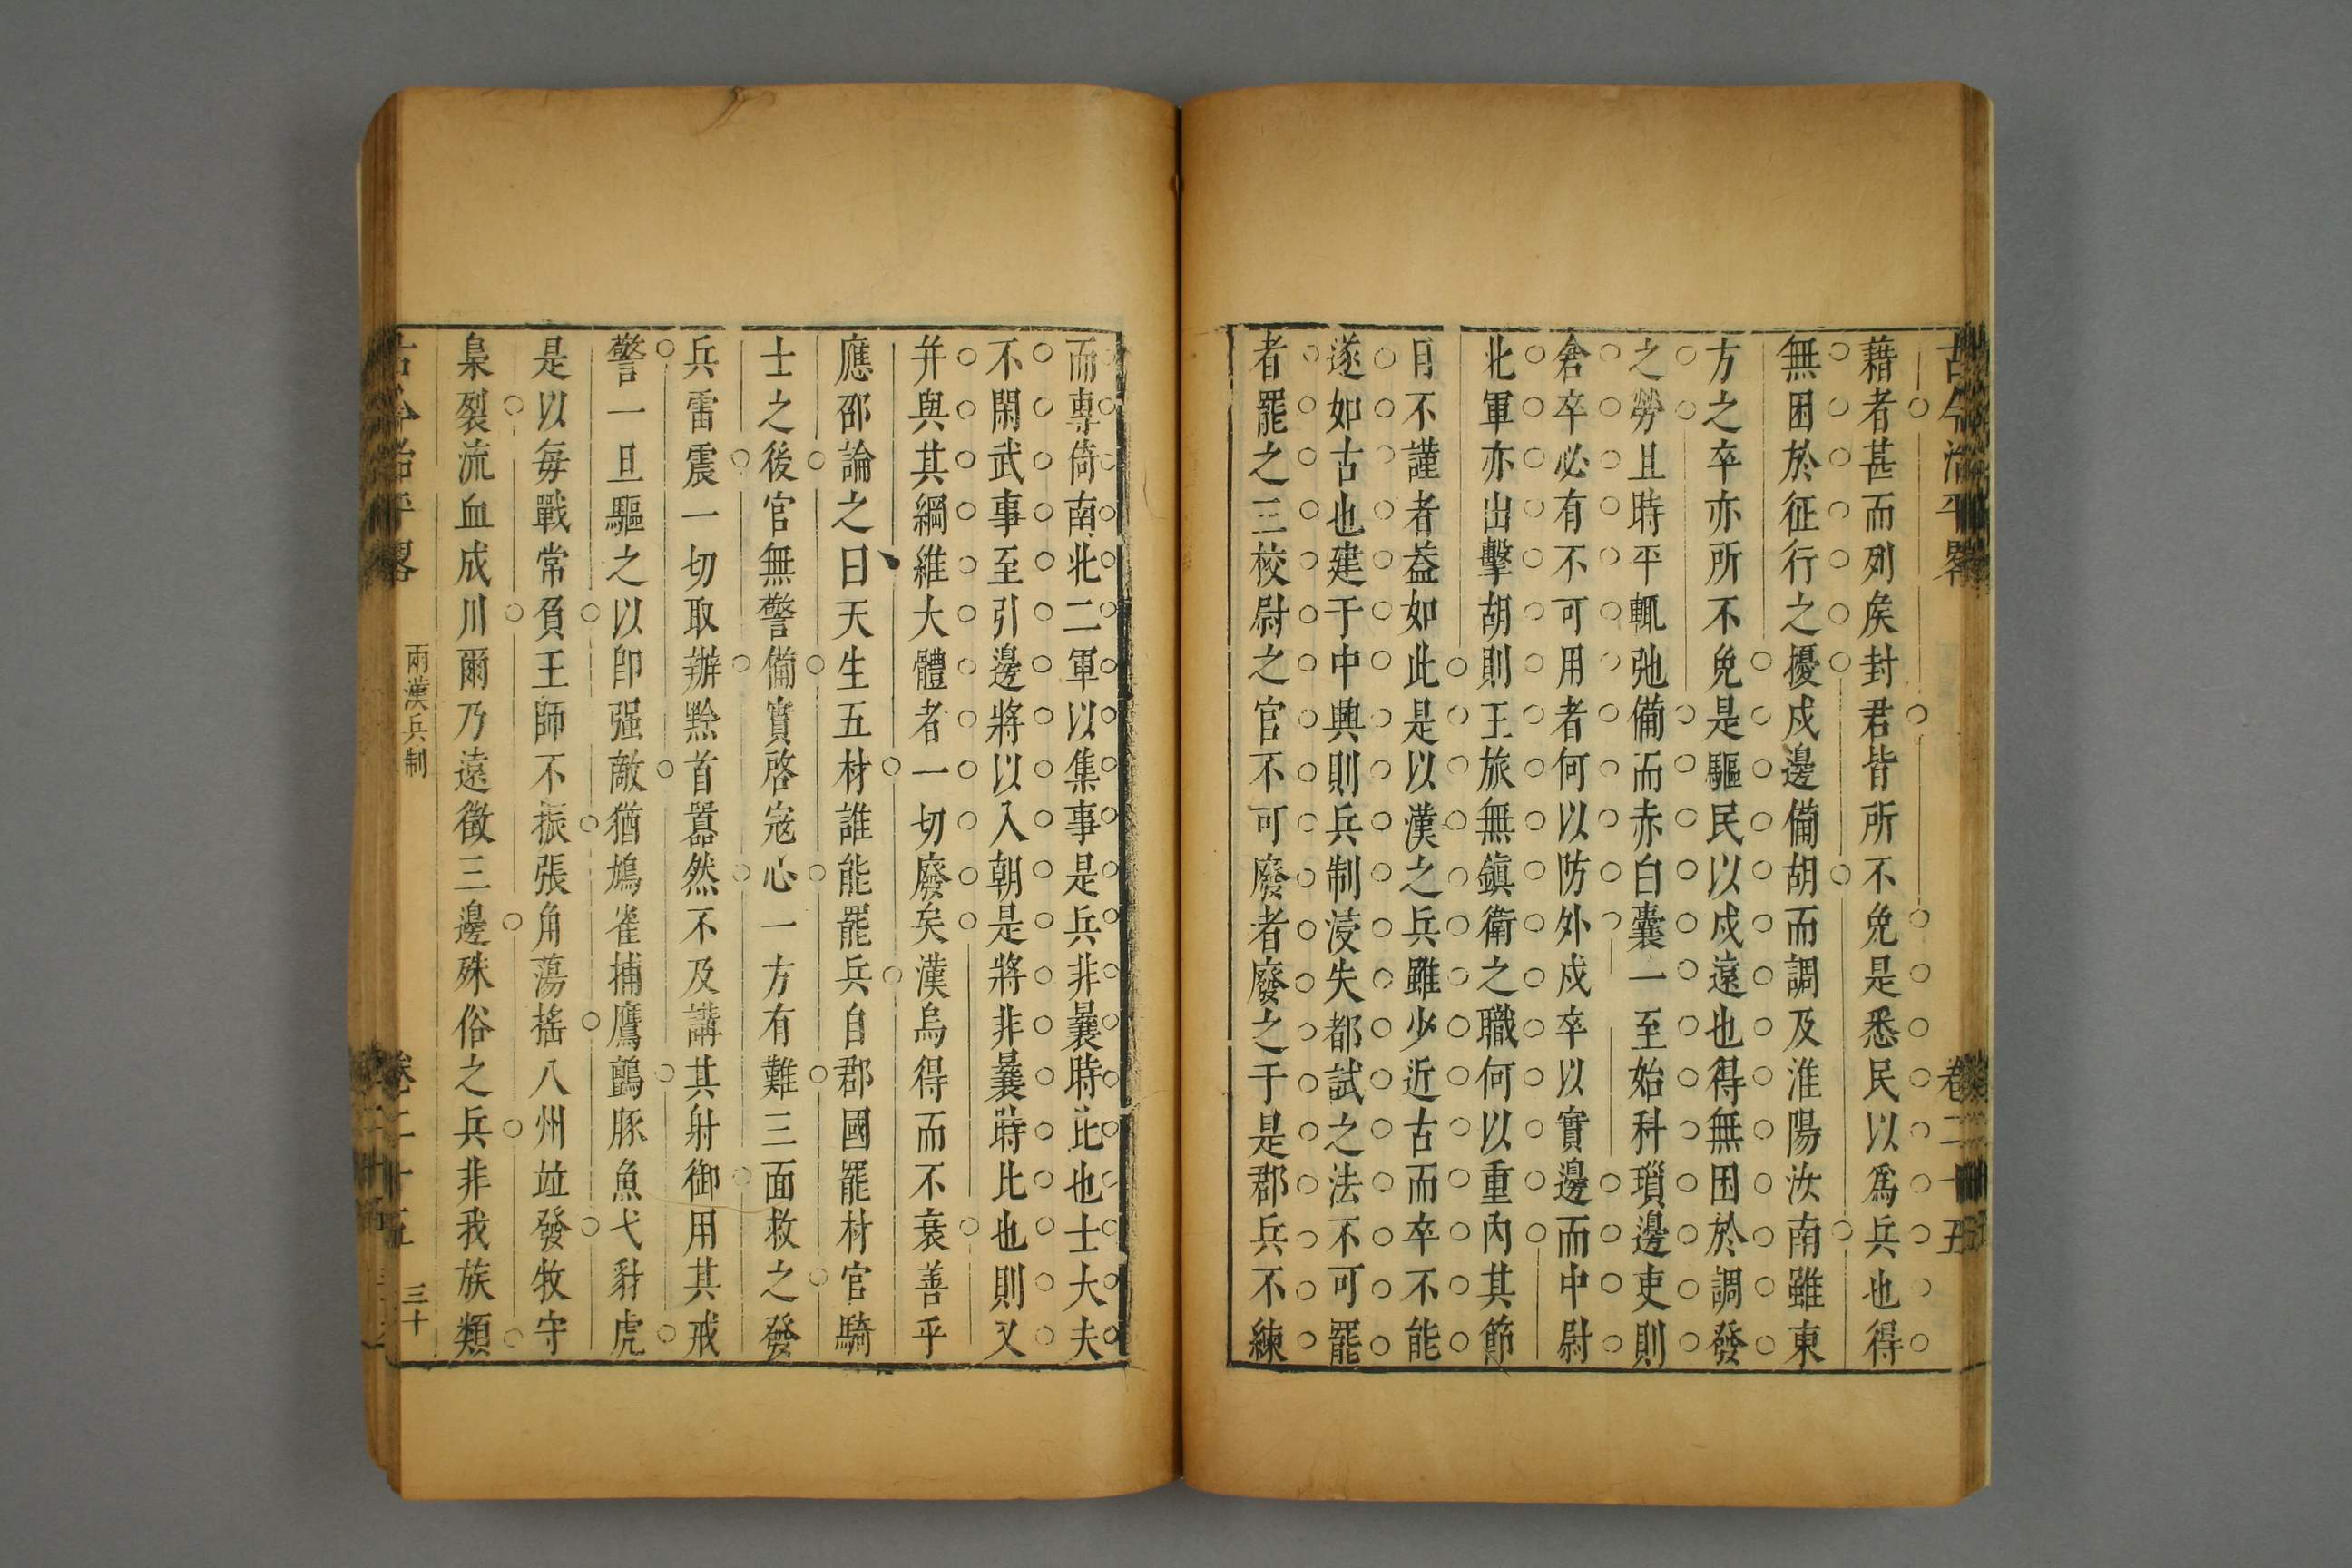 古今治平畧 卷二十五
藉者甚而列矦封君皆所不免是悉民以爲兵也得
無困於征行之擾戍邊備胡而調及淮陽汝南雖東
方之卒亦所不免是驅民以戍遠也得無困於調發
之勞且時平輒弛備而赤白囊一至始科瑣邊吏則
倉卒必有不可用者何以防外戍卒以實邊而中尉
北軍亦出擊胡則王旅無鎮衛之職何以重內其節
目不謹者益如此是以漢之兵雖少近古而卒不能
遂如古也建于中興則兵制浸失都試之法不可罷
者罷之三校尉之官不可廢者廢之于是郡兵不練
而專倚南北二軍以集事是兵非曩時比也士大夫
不閑武事至引邊將以入朝是將非曩時比也則又
并與其綱維大體者一切廢矣漢烏得而不衰善乎
應邵論之曰天生五材誰能罷兵自郡國罷材官騎
士之後官無警備實啓寇心一方有難三面救之發
兵雷震一切取辦黔首囂然不及講其射御用其戒
警一旦驅之以卽强敵猶鳩雀捕鷹鸇豚魚弋豺虎
是以每戰常負王師不振張角蕩搖八州竝發牧守
梟裂流血成川爾乃遠徵三邊殊俗之兵非我族類
古今治平畧 兩漢兵制 卷二十五 三十